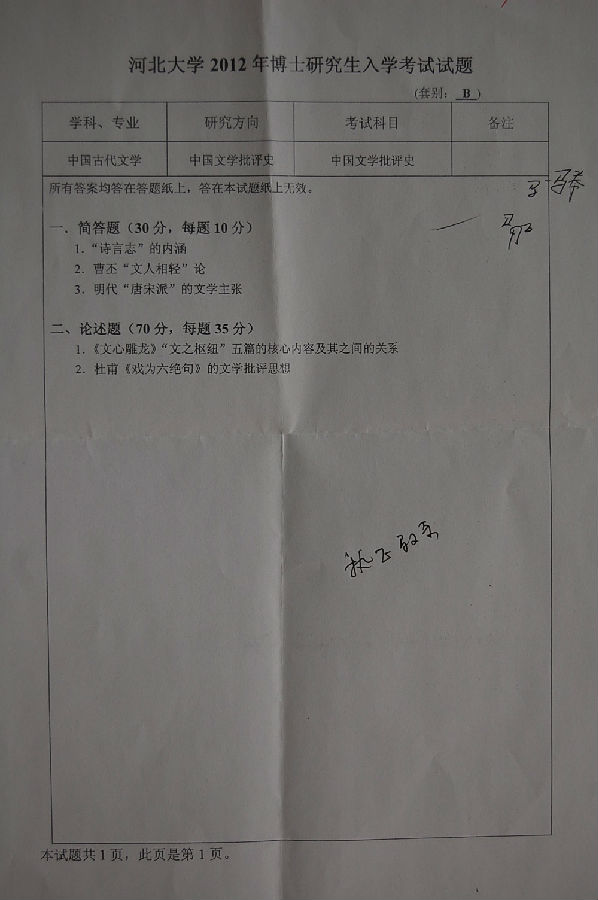 河北大学 2012 年博士研究生入学考试试题
(套别: B )
学科、专业 研究方向 考试科目 备注
中国古代文学 中国文学批评史 中国文学批评史
所有答案均答在答题纸上，答在本试题纸上无效。
一．简答题（30 分，每题 10 分）
1．“诗言志”的内涵
2．曹丕“文人相轻”论
3．明代“唐宋派”的文学主张
二、论述题（70 分，每题 35 分）
1．《文心雕龙》“文之枢纽”五篇的核心内容及其之间的关系
2．杜甫《戏为六绝句》的文学批评思想
本试题共 1 页，此页是第 1 页。